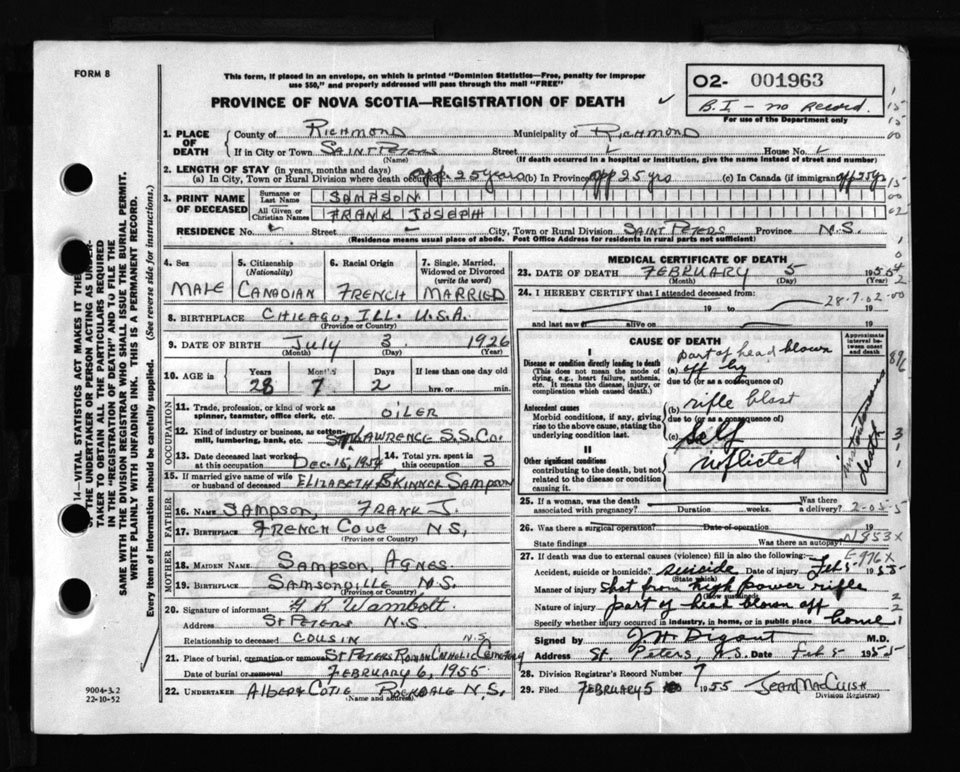 FORM 8
This form, if placed in an envelope, on which is printed "Dominion Statistics—Free, penalty for improper
use $50," and properly addressed will pass through the mail "FREE"
O2- 001963
B.I - no Record.
For use of the Department only
PROVINCE OF NOVA SCOTIA—REGISTRATION OF DEATH
1. PLACE OF DEATH County of RICHMOND Municipality of RICHMOND
If in City or Town SAINT PETERS Street House No.
(Name) (If death occurred in a hospital or institution, give the name instead of street and number)
2. LENGTH OF STAY (in years, months and days)
(a) In City, Town or Rural Division where death occurred app 25 years (b) In Province app 25 yrs (c) In Canada (if immigrant) app 25 yrs
3. PRINT NAME OF DECEASED Surname or Last Name SAMPSON
All Given or Christian Names FRANK JOSEPH
RESIDENCE No. Street City, Town or Rural Division SAINT PETERS Province N.S.
(Residence means usual place of abode. Post Office Address for residents in rural parts not sufficient)
4. Sex MALE
5. Citizenship (Nationality) CANADIAN
6. Racial Origin FRENCH
7. Single, Married, Widowed or Divorced (write the word) MARRIED
8. BIRTHPLACE CHICAGO, ILL. U.S.A.
(Province or Country)
9. DATE OF BIRTH July 3 1926
(Month) (Day) (Year)
10. AGE in Years Months Days If less than one day old
28 7 2 hrs. or min.
OCCUPATION
11. Trade, profession, or kind of work as spinner, teamster, office clerk, etc. OILER
12. Kind of industry or business, as cotton-mill, lumbering, bank, etc. ST LAWRENCE S.S. Co.
13. Date deceased last worked at this occupation Dec. 15, 1954 14. Total yrs. spent in this occupation 3
15. If married give name of wife or husband of deceased ELIZABETH SKINNER SAMPSON
FATHER
16. NAME SAMPSON, FRANK J.
17. BIRTHPLACE FRENCH COVE N.S,
(Province or Country)
MOTHER
18. MAIDEN NAME SAMPSON, AGNES.
19. BIRTHPLACE SAMSONVILLE N.S.
(Province or Country)
20. Signature of informant
Address ST PETERS N.S.
Relationship to deceased COUSIN
21. Place of burial, cremation or removal ST PETERS ROMAN CATHOLIC CEMETERY N.S.
Date of burial or removal FEBRUARY 6, 1955
22. UNDERTAKER ALBERT N.S.
(Name and address)
MEDICAL CERTIFICATE OF DEATH
23. DATE OF DEATH FEBRUARY 5 1955
(Month) (Day) (Year)
24. I HEREBY CERTIFY that I attended deceased from:
28-7-02-00
19 to 19
and last saw alive on 19
CAUSE OF DEATH
Approximate interval between onset and death
I
Disease or condition directly leading to death
(This does not mean the mode of dying, e.g., heart failure, asthenia, etc. It means the disease, injury, or complication which caused death.)
(a) part of head blown off by
due to (or as a consequence of)
Antecedent causes
Morbid conditions, if any, giving rise to the above cause, stating the underlying condition last.
(b) rifle blast
due to (or as a consequence of)
(c) self
II
Other significant conditions
contributing to the death, but not related to the disease or condition causing it.
inflicted
instantaneous death
25. If a woman, was the death associated with pregnancy? Duration weeks. Was there a delivery?
2-05-5
26. Was there a surgical operation? Date of operation 19
State findings Was there an autopsy?
N853X
E976X
27. If death was due to external causes (violence) fill in also the following:—
Accident, suicide or homicide? suicide Date of injury Feb 5 1955
(State which)
Manner of injury Shot from high power rifle
(How sustained)
Nature of injury part of head blown off
Specify whether injury occurred in industry, in home, or in public place home
Signed by M.D.
Address St. Peters, N.S. Date Feb 5 1955
28. Division Registrar's Record Number 7
29. Filed FEBRUARY 5 1955 JEAN MACCUISH
Division Registrar)
14—VITAL STATISTICS ACT MAKES IT THE
OF THE UNDERTAKER OR PERSON ACTING AS UNDER-
TAKER TO OBTAIN ALL THE PARTICULARS REQUIRED
IN THE "REGISTRATION OF DEATH" AND TO FILE THE
SAME WITH THE DIVISION REGISTRAR WHO SHALL ISSUE THE BURIAL PERMIT.
WRITE PLAINLY WITH UNFADING INK. THIS IS A PERMANENT RECORD.
Every item of information should be carefully supplied. (See reverse side for instructions.)
9004-3.2
22-10-52